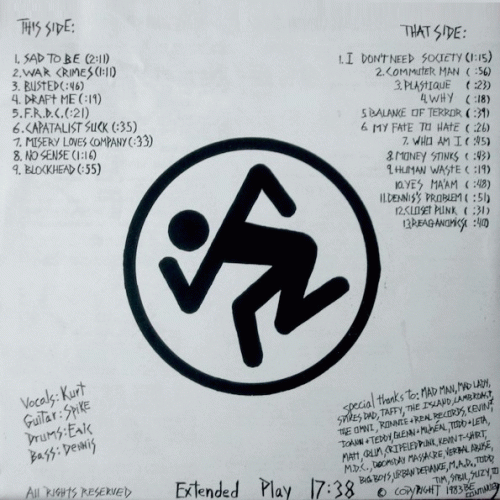 THIS SIDE:
1. SAD TO BE (2:11)
2. WAR CRIMES (1:11)
3. BUSTED (:46)
4. DRAFT ME (:19)
5. F.R.D.C. (:21)
6. CAPATALIST SUCK (:35)
7. MISERY LOVES COMPANY (:33)
8. NO SENSE (1:16)
9. BLOCKHEAD (:55)
THAT SIDE:
1. I DON'T NEED SOCIETY (1:15)
2. COMMUTER MAN (:56)
3. PLASTIQUE (:23)
4. WHY (:18)
5. BALANCE OF TERROR (:39)
6. MY FATE TO HATE (:26)
7. WHO AM I (:45)
8. MONEY STINKS (:43)
9. HUMAN WASTE (:19)
10. YES MA'AM (:48)
11. DENNIS'S PROBLEM (:51)
12. CLOSET PUNK (:31)
13. REAGANOMICS (:40)
Vocals: Kurt
Guitar: Spike
Drums: Eric
Bass: Dennis
special thanks to: MAD MAN, MAD LADY,
SPIKES DAD, TAFFY, THE ISLAND, LAMEROAST,
THE OMNI, RONNIE + REAL RECORDS, KEVIN?
+ TEDDY, GLENN + TODD + LETA,
MATT, CRIPELED PUNK, KEVIN T-SHIRT,
M.D.C., DOOMSDAY MASSACRE, VERBAL ABUSE,
BIG BOYS, URBAN DEFIANCE, M.A.D., TODD,
TIM, SYBIL, SUZY
ALL RIGHTS RESERVED
Extended Play 17:38
© COPYRIGHT 1983 BE